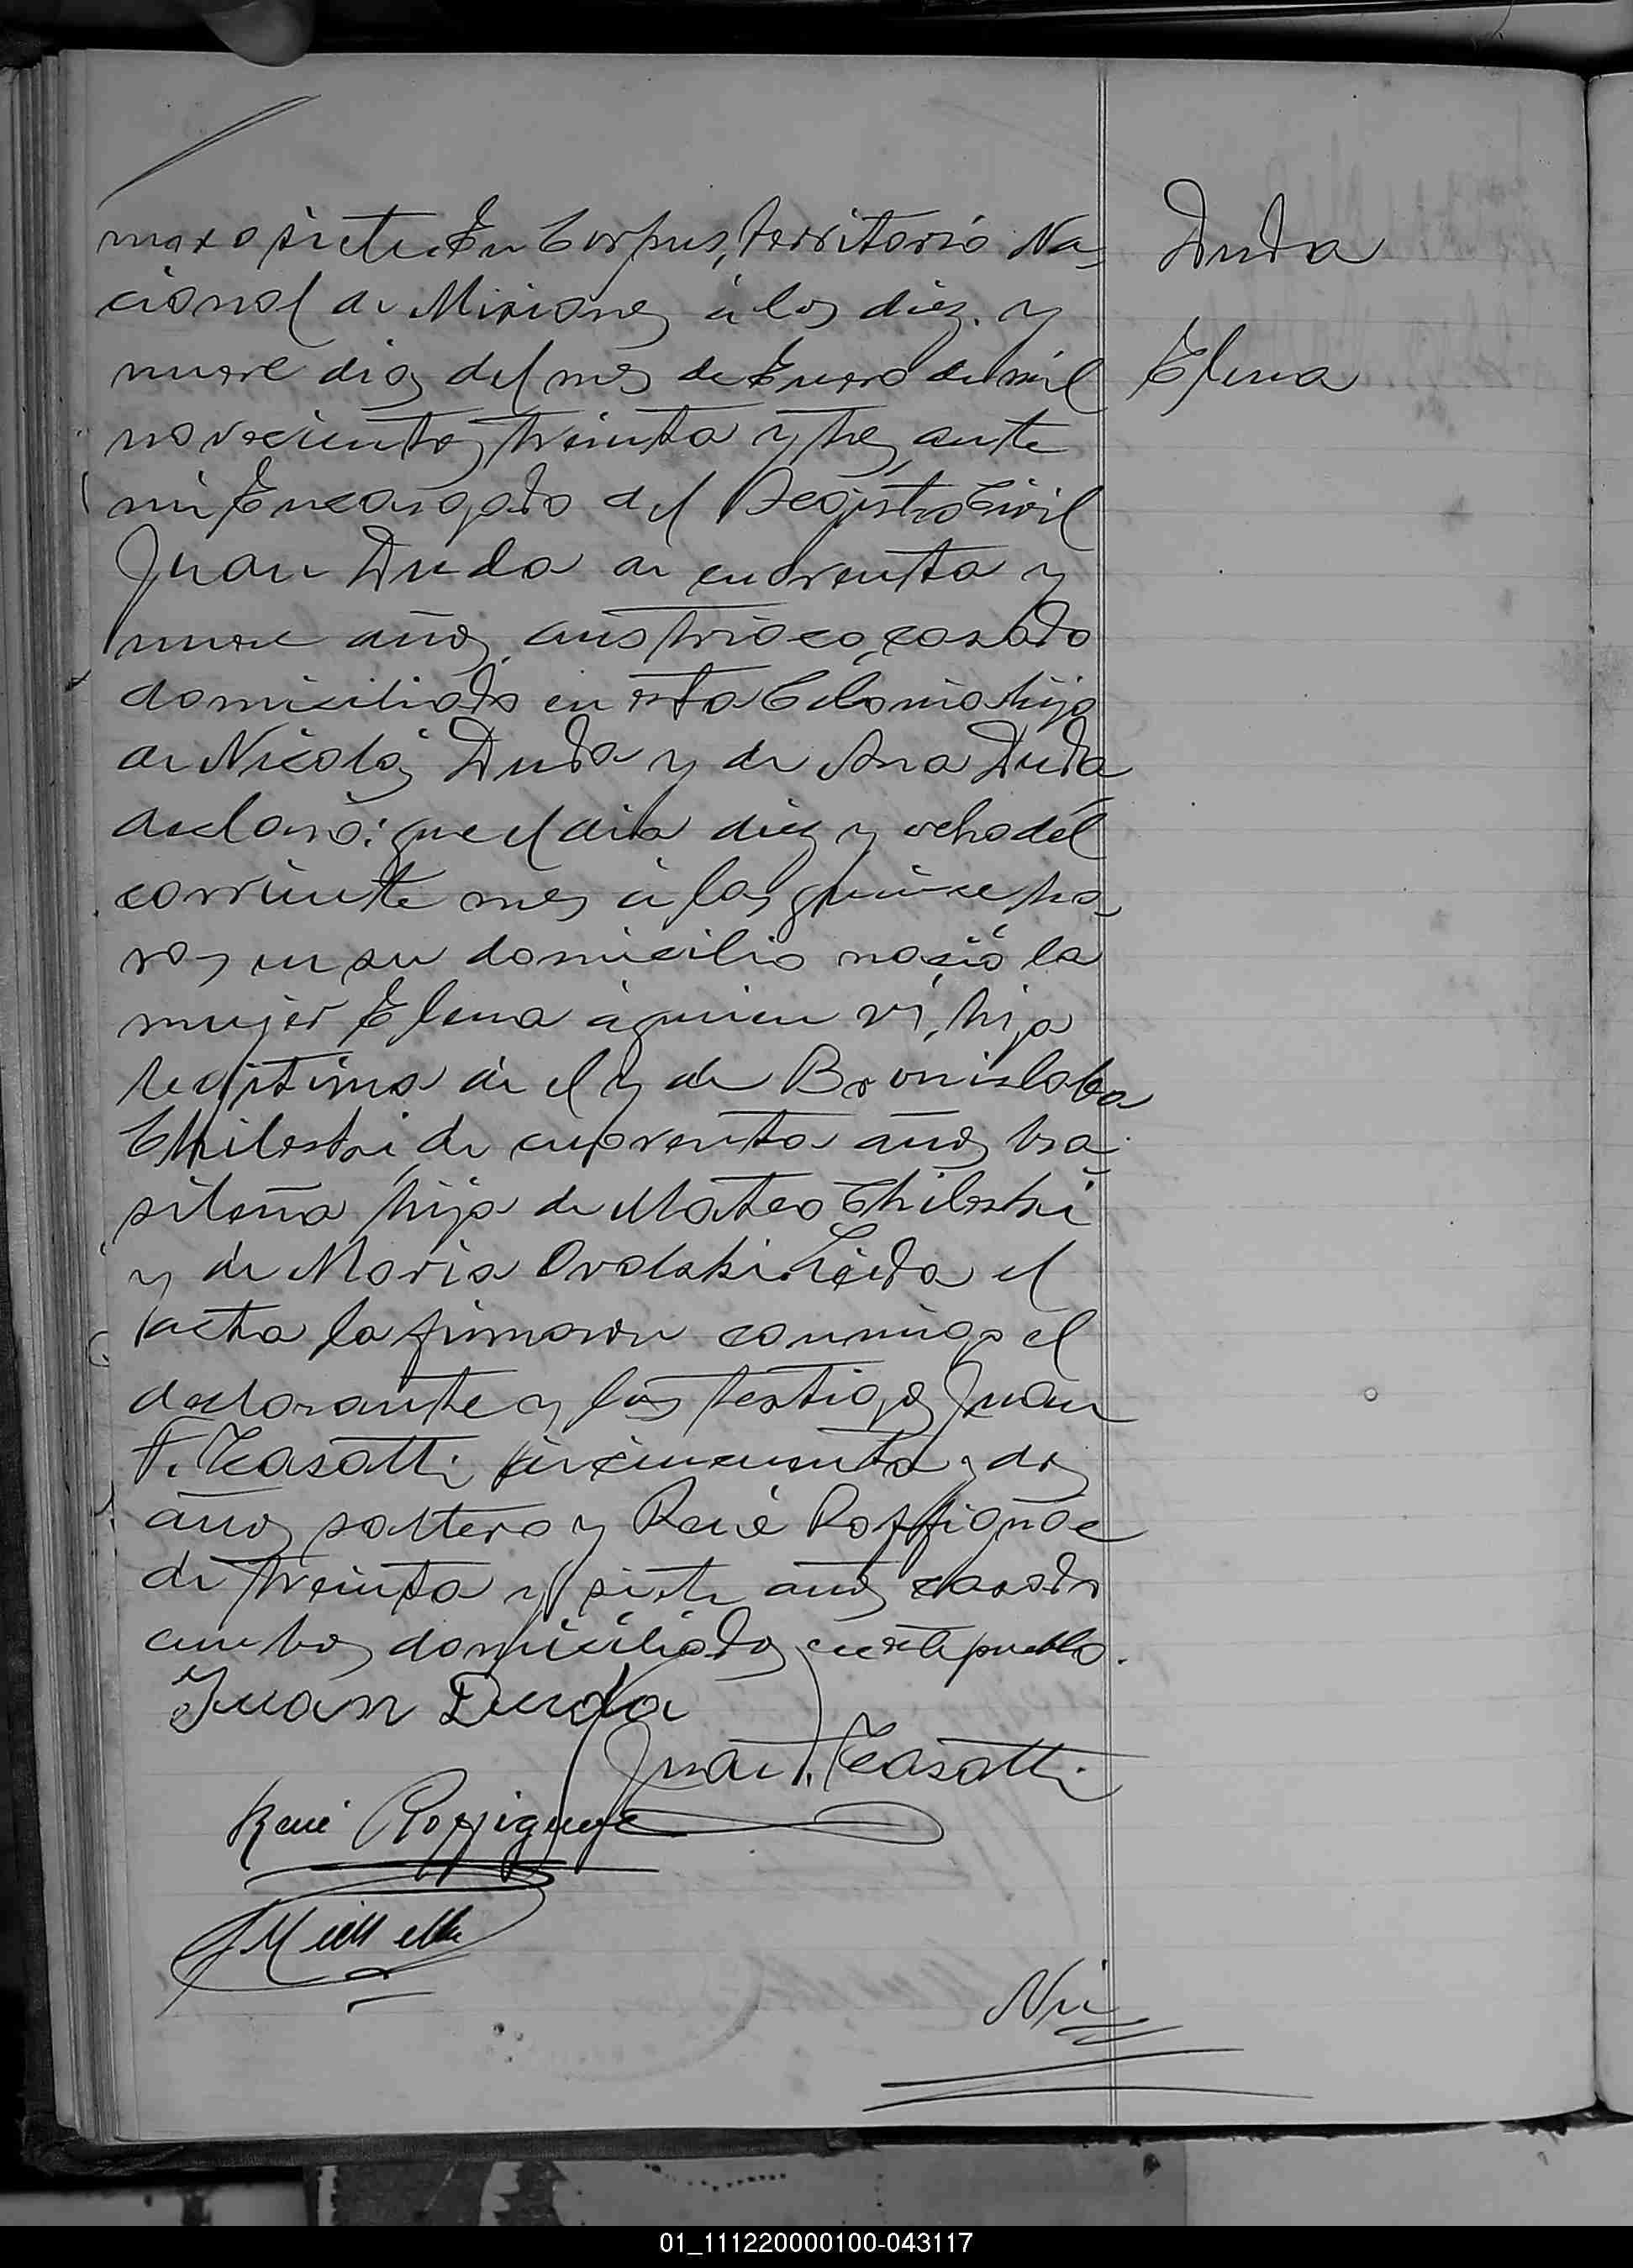 mero siete. En Corpus, Territorio Na-
cional de Misiones á los diez y
nueve dias del mes de Enero de mil
novecientos treinta y tres, ante
mi Encargado del Registro Civil
Juan Duda de cuarenta y
nueve años, austriaco, casado
domiciliado en esta Colonia hijo
de Nicolás Duda y de Ana Duda
declaró: que el dia diez y ocho del
corriente mes á las quince ho-
ras en su domicilio nació la
mujer Elena á quien ví, hija
legitima de el y de Bronislaba
de cuarenta años bra-
sileña hija de Mateo
y de Maria Leida el
acta la firmaron conmigo el
declarante y los testigos Juan
F. Casatti de cincuenta y dos
años soltero y René Roffignae
de treinta y siete años casado
ambos domiciliados en este pueblo.
Juan Duda
Juan F. Casatti
René Roffignae
Duda
Elena
01_111220000100-043117